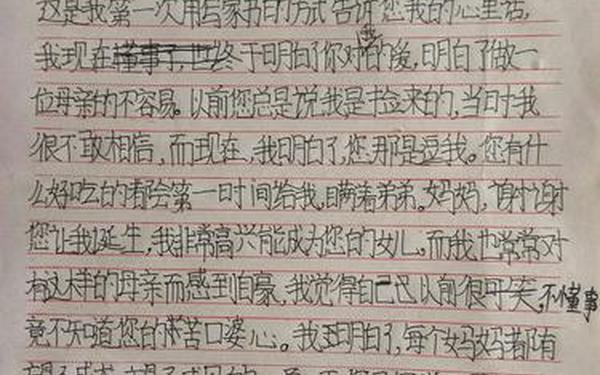 这是我第一次用写家书的方式告诉您我的心里话,
我现在懂事了,也终于明白了你对我的爱,明白了做一
位母亲的不容易。以前您总是说我是书捡来的,当时我
很不敢相信,而现在,我明白了,您那是逗我。您有什
么好吃的都会第一时间给我,瞒着弟弟。妈妈,谢谢
您让我诞生,我非常高兴能成为您的女儿。而我也常常对
有这样的母亲而感到自豪,我觉得自己以前很可笑,不懂事
竟不知道您的苦口婆心。我明白了,每个妈妈都有
望子成龙,望子成凤的